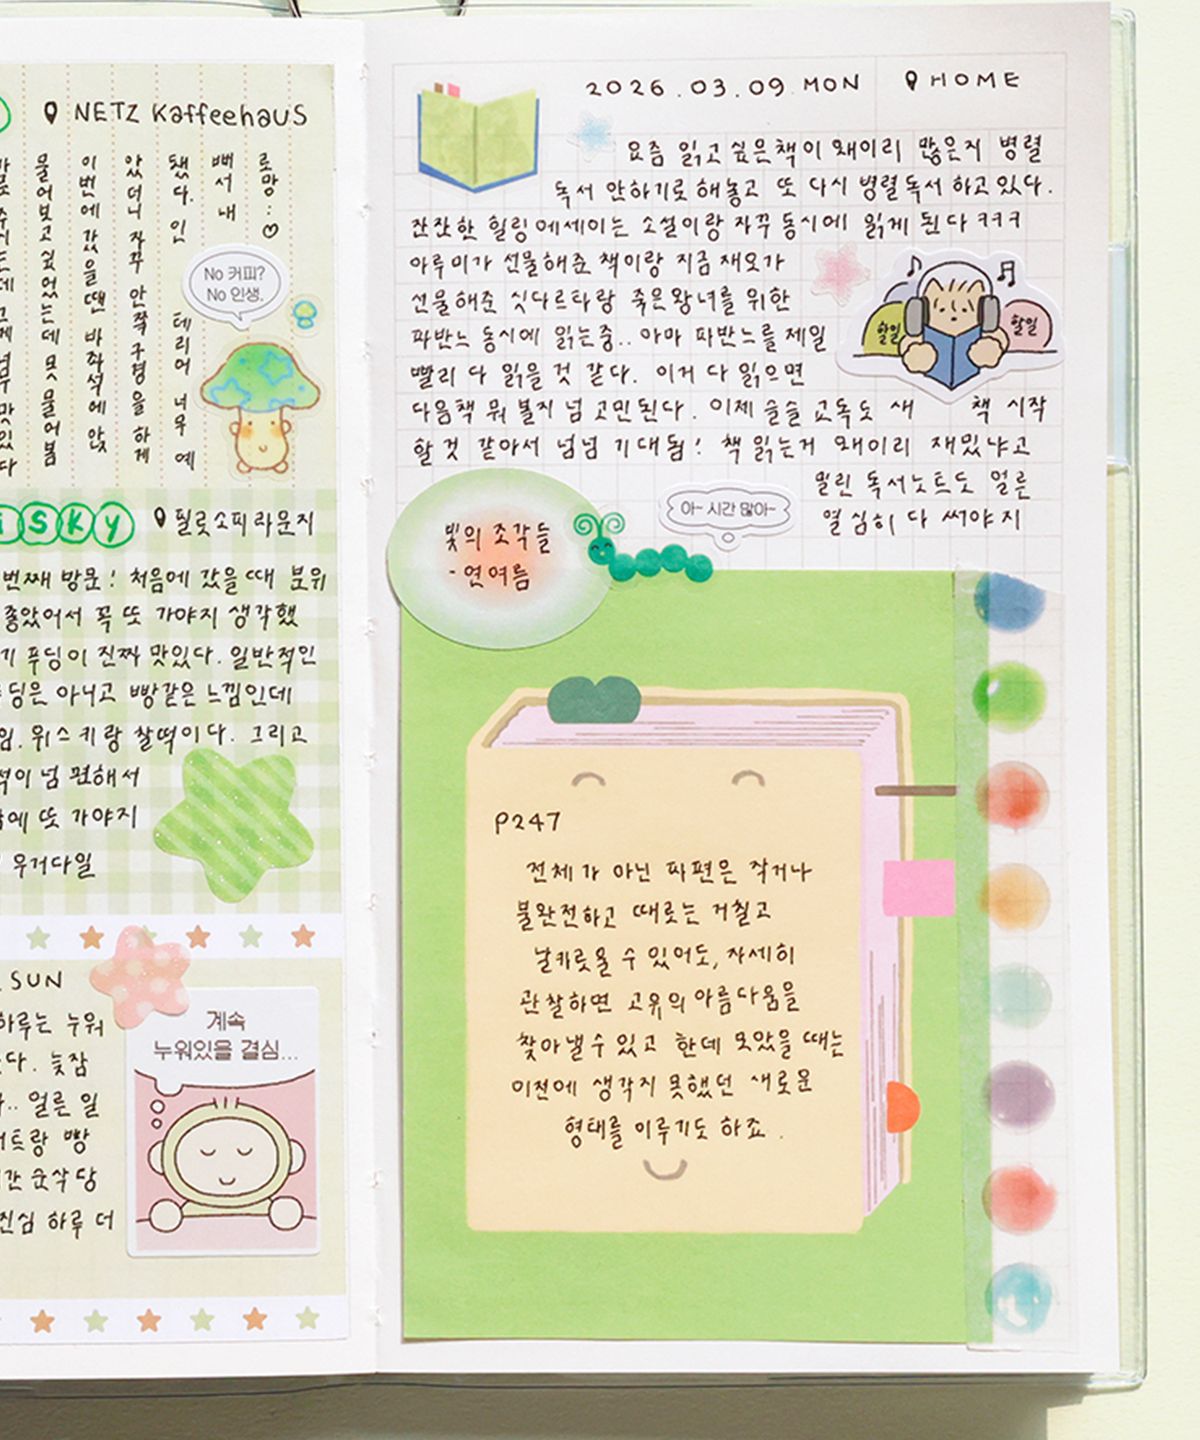 NETZ Kaffeehaus
로망 : ♡
빼서 내
됐다. 인테리어 너무 예
았더니 자꾸 안쪽 구경을 하게
이번에 갔을 땐 바 좌석에 앉
물어보고 싶었는데 못 물어봄
No 커피?
No 인생.
iSKY
필로소피 라운지
번째 방문! 처음에 갔을 때 분위
좋았어서 꼭 또 가야지 생각했
기 푸딩이 진짜 맛있다. 일반적인
딩은 아니고 빵같은 느낌인데
임. 위스키랑 찰떡이다. 그리고
이 넘 편해서
에 또 가야지
우거다일
SUN
하루는 누워
다. 늦잠
.. 얼른 일
트랑 빵
간 순삭 당
진심 하루 더
계속
누워있을 결심...
2026.03.09 MON
HOME
요즘 읽고 싶은책이 왜이리 많은지 병렬
독서 안하기로 해놓고 또 다시 병렬독서 하고있다.
잔잔한 힐링에세이는 소설이랑 자꾸 동시에 읽게 된다 ㅋㅋㅋ
아루미가 선물해준 책이랑 지금 재오가
선물해준 싯다르타랑 죽은왕녀를 위한
파반느 동시에 읽는중.. 아마 파반느를 제일
빨리 다 읽을 것 같다. 이거 다 읽으면
다음책 뭐 볼지 넘 고민된다. 이제 슬슬 교독도 새 책 시작
할 것 같아서 넘넘 기대됨! 책 읽는거 왜이리 재밌냐고
밀린 독서노트도 얼른
열심히 다 써야지
할일
할일
아~ 시간 많아~
빛의 조각들
- 연여름
P247
전체가 아닌 파편은 작거나
불완전하고 때로는 거칠고
날카로울 수 있어도, 자세히
관찰하면 고유의 아름다움을
찾아낼 수 있고 한데 모았을 때는
이전에 생각지 못했던 새로운
형태를 이루기도 하죠.